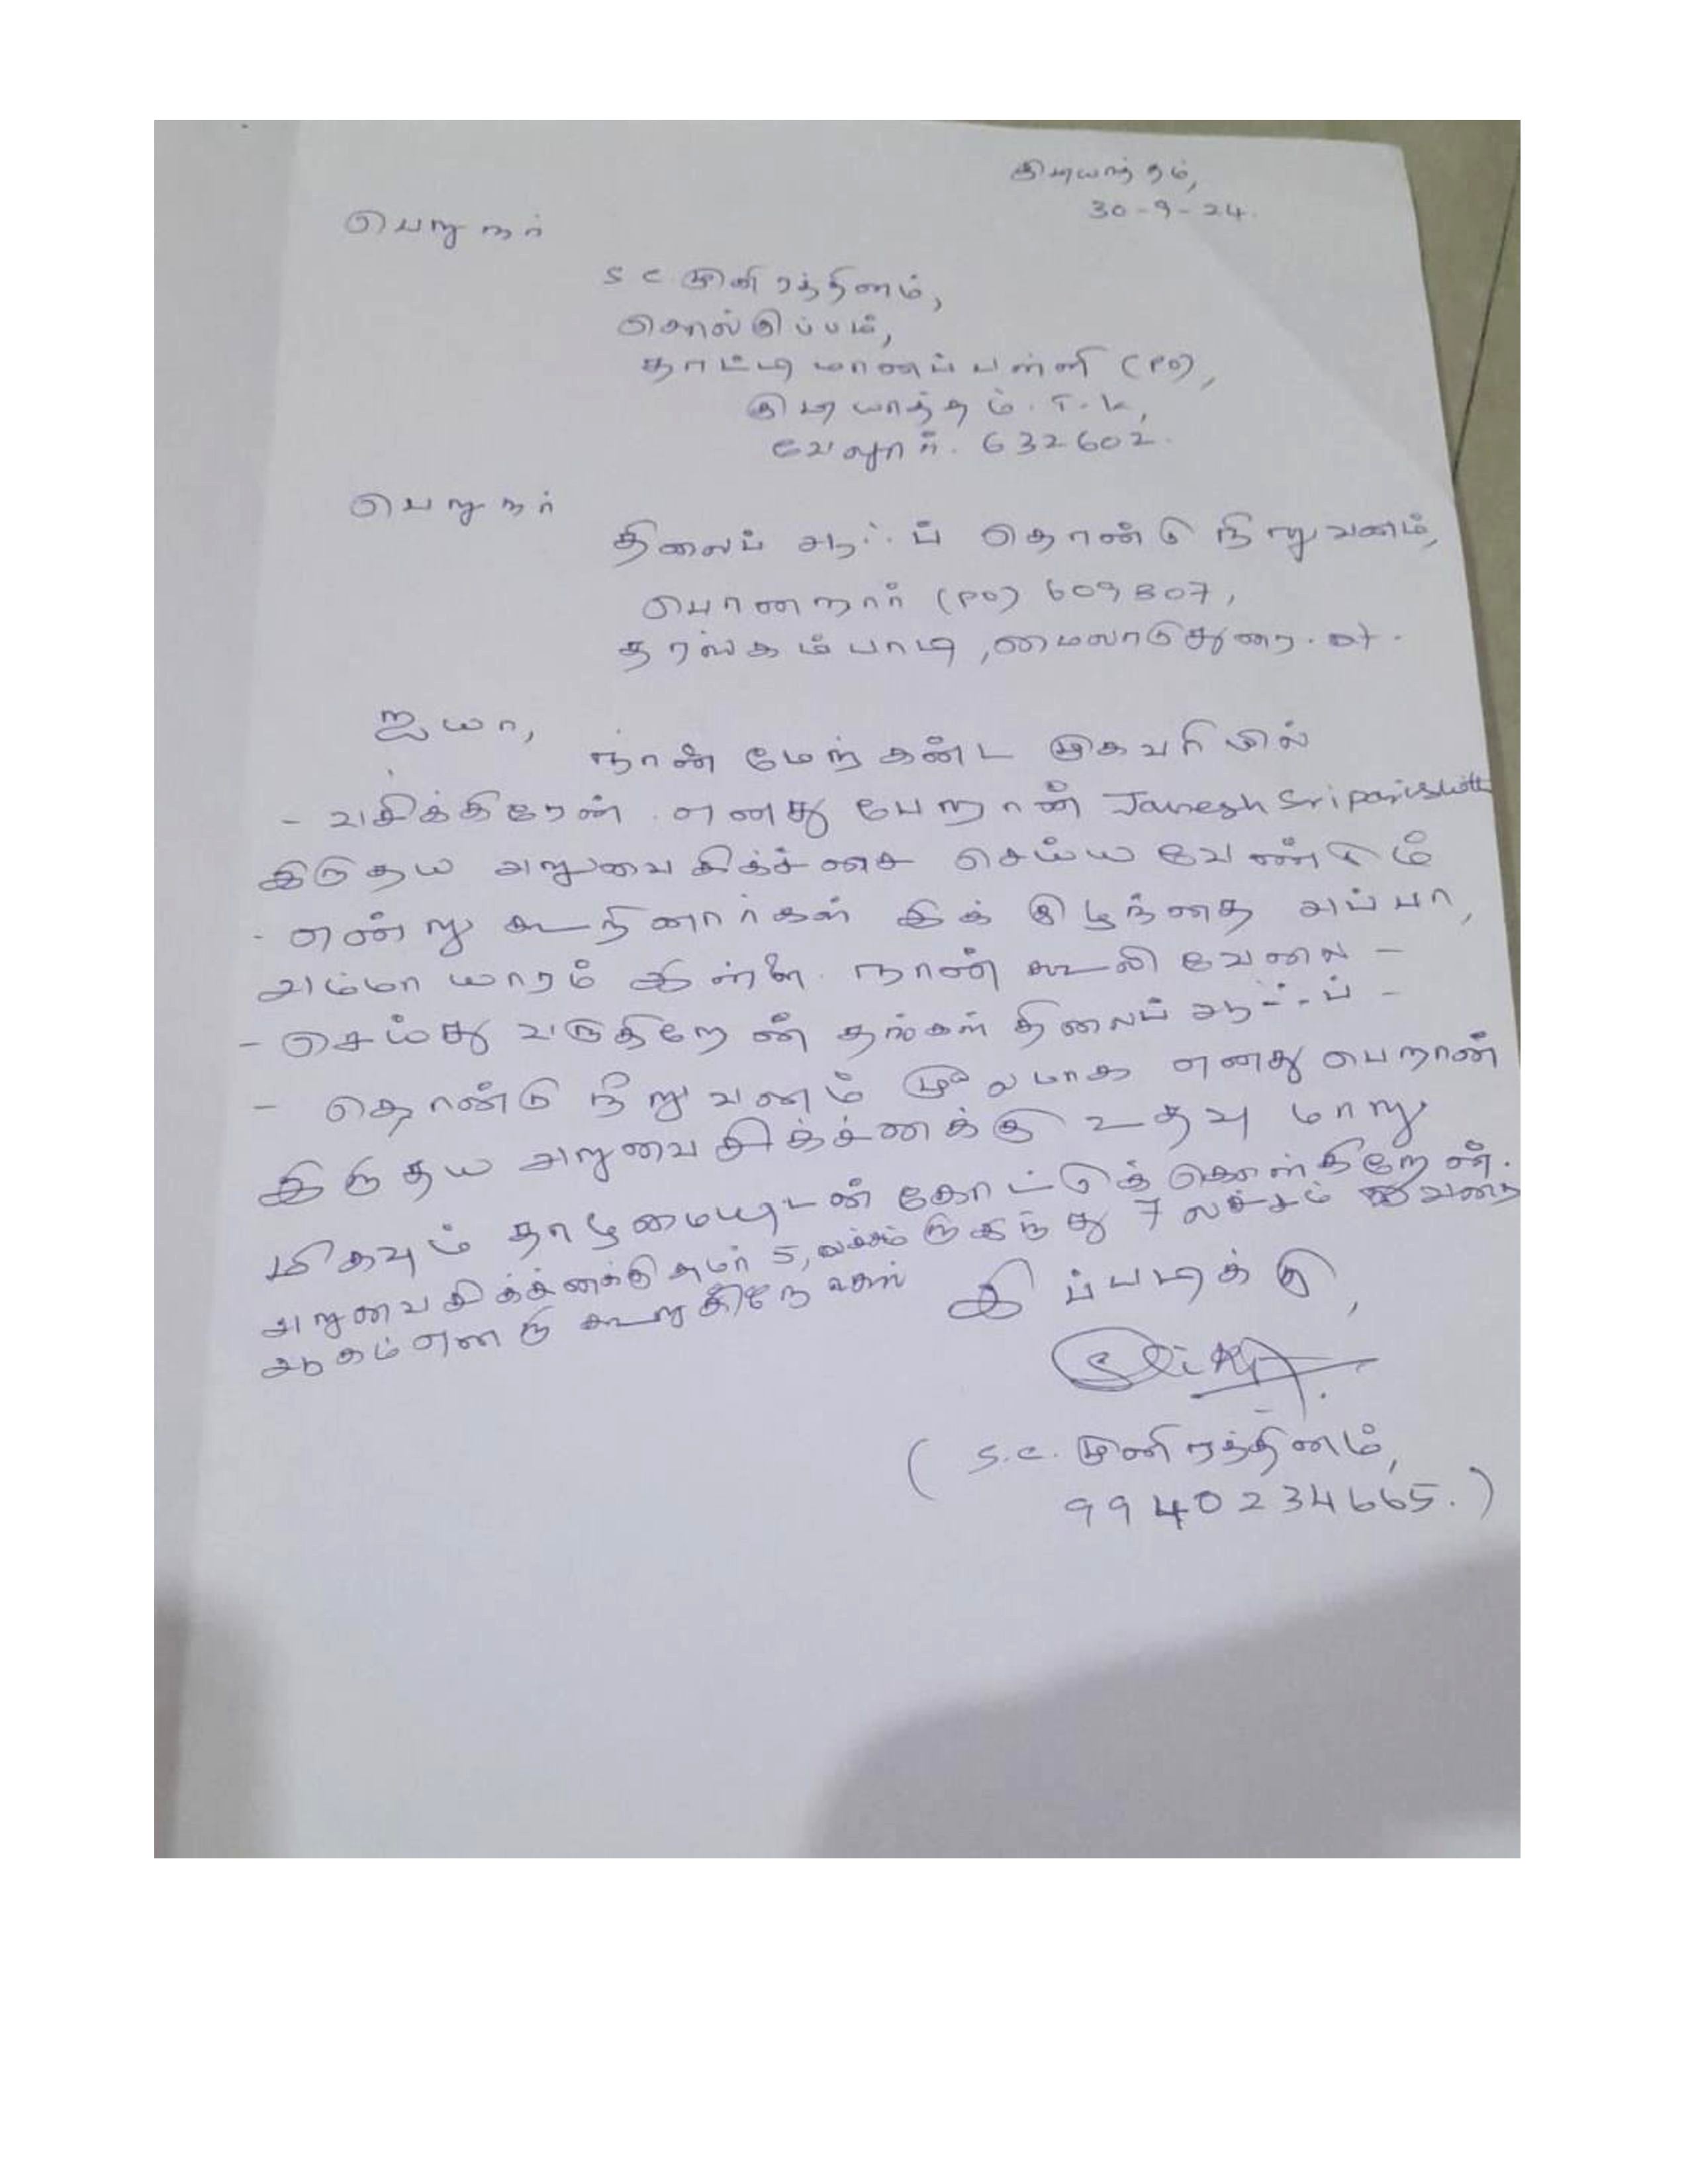 குடியாத்தம்,
30-9-24.
பெறுநர்
S C முனிரத்தினம்,
கொல்குப்பம்,
தாட்டிமாணப்பள்ளி (PO),
குடியாத்தம். T.K,
வேலூர். 632602.
பெறுநர்
திலைப் ஆஃப் தொண்டு நிறுவனம்,
பொறையார் (PO) 609307,
தரங்கம்பாடி, மைலாடுதுறை. Dt.
ஐயா,
நான் மேற்கண்ட முகவரியில்
- வசிக்கிறேன். எனது பேறான் Janesh Sri
இருதய அறுவை சிகிச்சை செய்ய வேண்டும்
- என்று கூறினார்கள் இக் குழந்தை அப்பா,
அம்மா யாரும் இல்லை. நான் கூலி வேலை -
- செய்து வருகிறேன் தங்கள் திலைப் ஆஃப் -
- தொண்டு நிறுவனம் மூலமாக எனது பெறான்
இருதய அறுவை சிகிச்சைக்கு உதவு மாறு
மிகவும் தாழமையுடன் கேட்டுக் கொள்கிறேன்.
அறுவை சிகிச்சைக்கு சுமார் 5, லச்சம் இருந்து 7 லச்சம் வரை
ஆகும் என கூறுகிறார்கள்
இப்படிக்கு,
( S.C. முனிரத்தினம்,
99402 34665. )